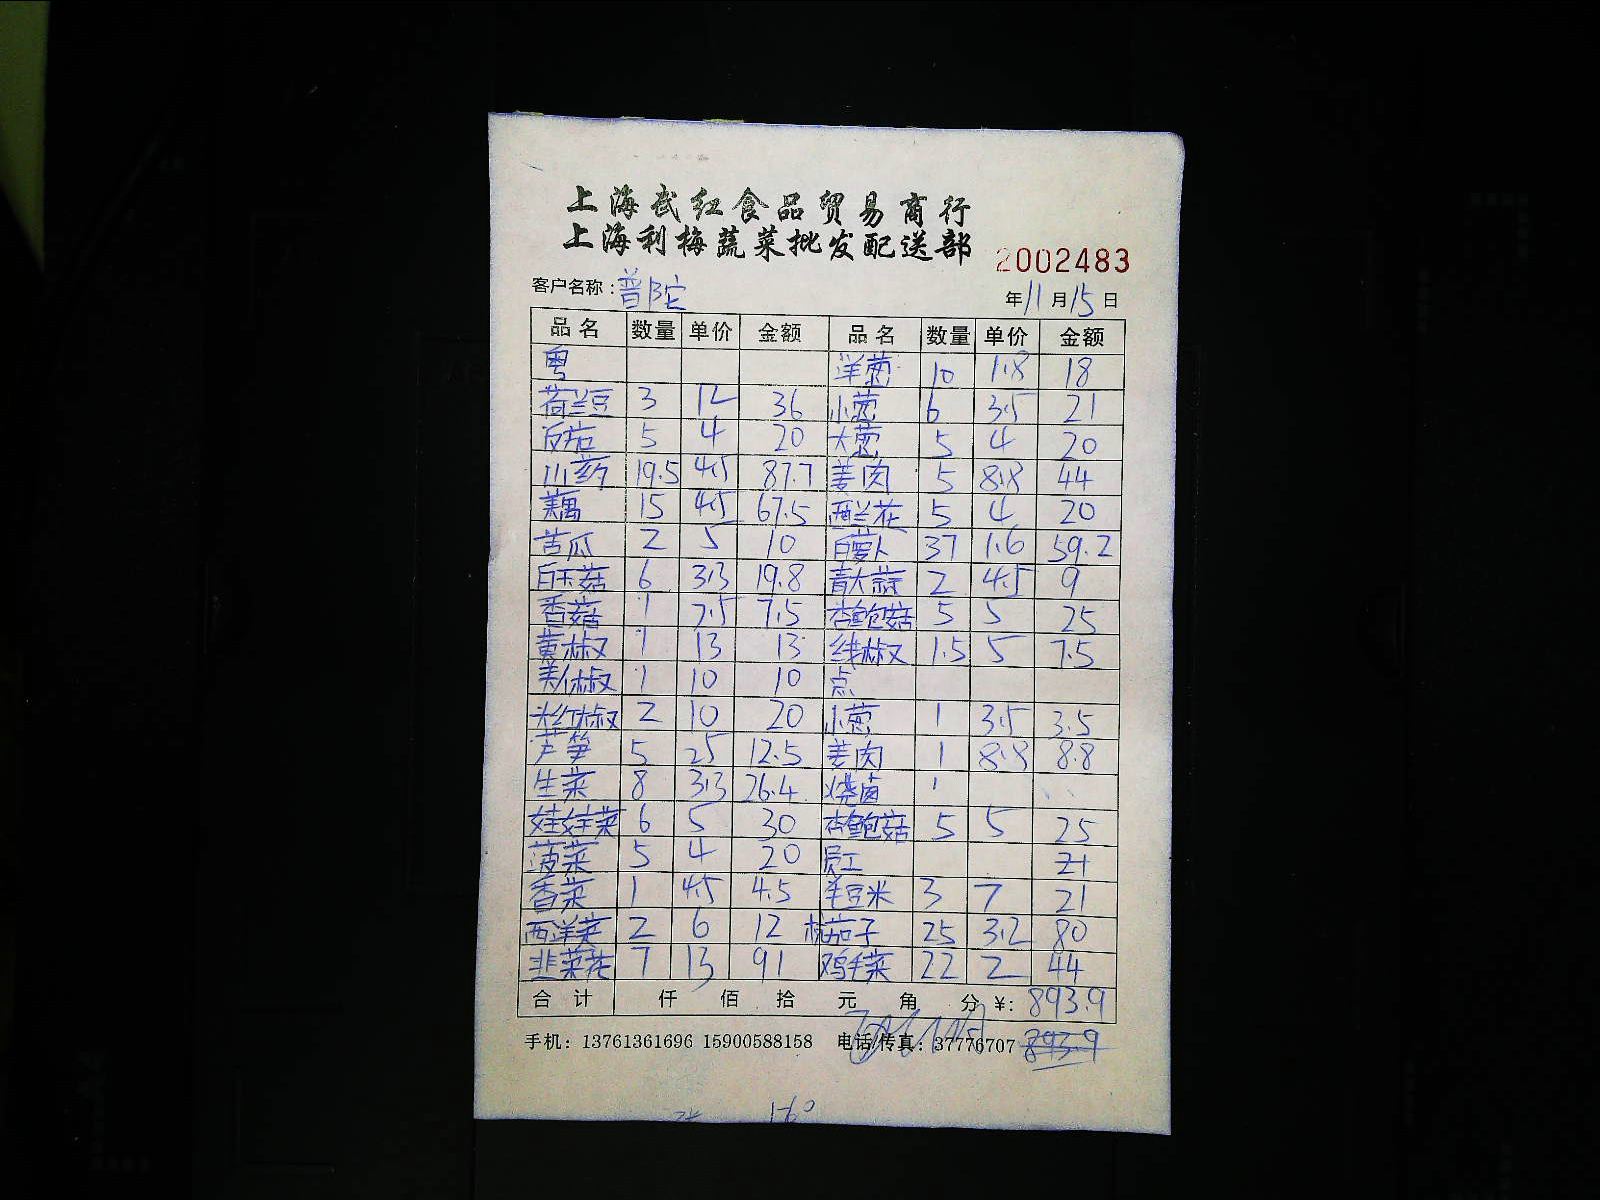 上海武红食品贸易商行
上海利梅蔬菜批发配送部
2002483
客户名称：普陀 年11月15日
品名 数量 单价 金额 品名 数量 单价 金额
粤 洋葱 10 1.8 18
荷兰豆 3 12 36 小葱 6 3.5 21
5 4 20 大葱 5 4 20
山药 19.5 4.5 87.7 姜肉 5 8.8 44
藕 15 4.5 67.5 西兰花 5 4 20
苦瓜 2 5 10 白萝卜 37 1.6 59.2
白玉菇 6 3.3 19.8 青大蒜 2 4.5 9
香菇 1 7.5 7.5 杏鲍菇 5 5 25
黄椒 1 13 13 线椒 1.5 5 7.5
美人椒 1 10 10 点
大红椒 2 10 20 小葱 1 3.5 3.5
芦笋 5 25 12.5 姜肉 1 8.8 8.8
生菜 8 3.3 26.4 烧卤
娃娃菜 6 5 30 杏鲍菇 5 5 25
菠菜 5 4 20 员工
香菜 1 4.5 4.5 羊豆米 3 7 21
西洋菜 2 6 12 杭茄子 25 3.2 80
韭菜花 7 13 91 鸡毛菜 22 2 44
合计 仟 佰 拾 元 角 分 ¥: 893.9
手机：13761361696 15900588158 电话/传真：37776707 893.9